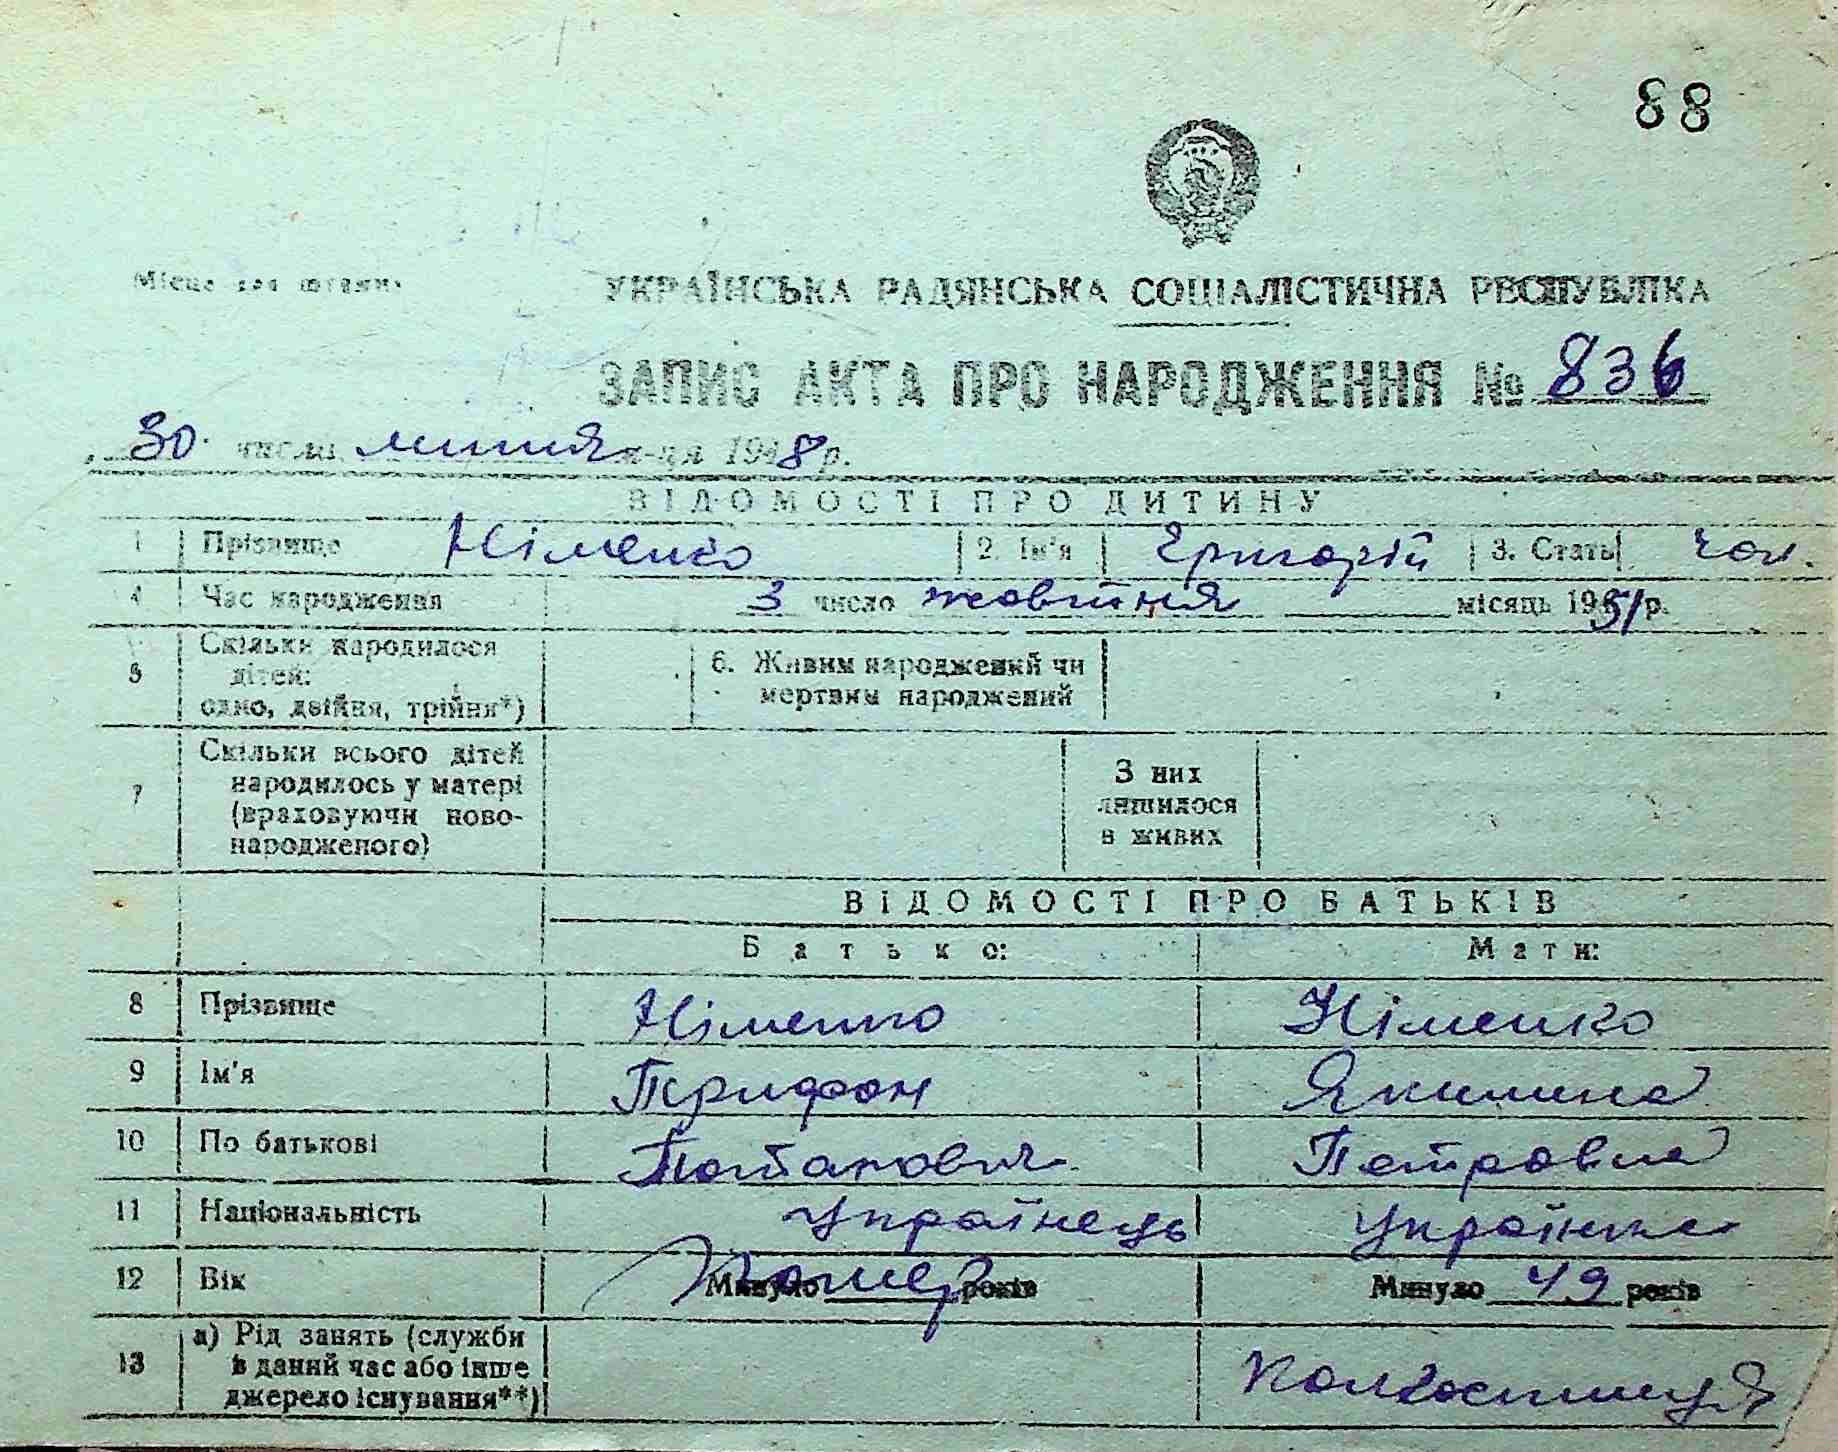 88
Місце для штампу УКРАЇНСЬКА РАДЯНСЬКА СОЦІАЛІСТИЧНА РЕСПУБЛІКА
ЗАПИС АКТА ПРО НАРОДЖЕННЯ № 836
30 числа липня м-ця 1948 р.
ВІДОМОСТІ ПРО ДИТИНУ
1 Прізвище Німенко 2. Ім'я Григорій 3. Стать чол.
4 Час народження 3 число жовтня місяць 1931 р.
5 Скільки народилося
дітей:
одно, двійня, трійня*) 6. Живим народжений чи
мертвим народжений
7 Скільки всього дітей
народилось у матері
(враховуючи ново-
народженого) З них
лишилося
в живих
ВІДОМОСТІ ПРО БАТЬКІВ
Батько: Мати:
8 Прізвище Німенко Німенко
9 Ім'я Трифон Якилина
10 По батькові Петровна
11 Національність Українець Українка
12 Вік Минуло помер років Минуло 49 років
13 а) Рід занять (служби
в даний час або інше
джерело існування**) Колхосниця